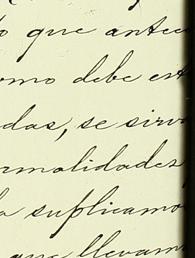 o que antec
omo debe est
das, se sirv
rmalidades
a suplicamo
que llevam